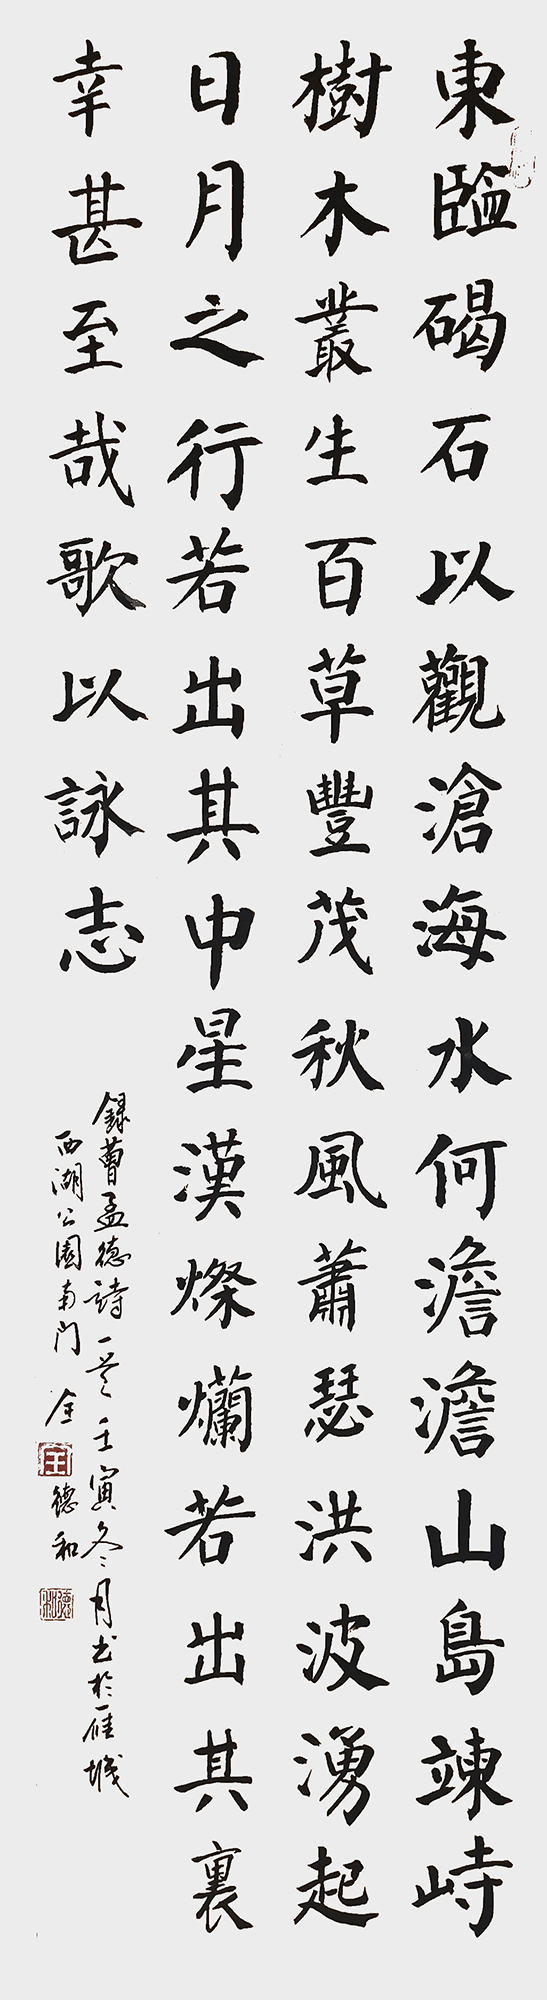 東臨碣石以觀滄海水何澹澹山島竦峙
樹木叢生百草豐茂秋風蕭瑟洪波湧起
日月之行若出其中星漢燦爛若出其裏
幸甚至哉歌以詠志
錄曹孟德詩一首壬寅冬月书於雁城
西湖公園南门 全德和
全
德和